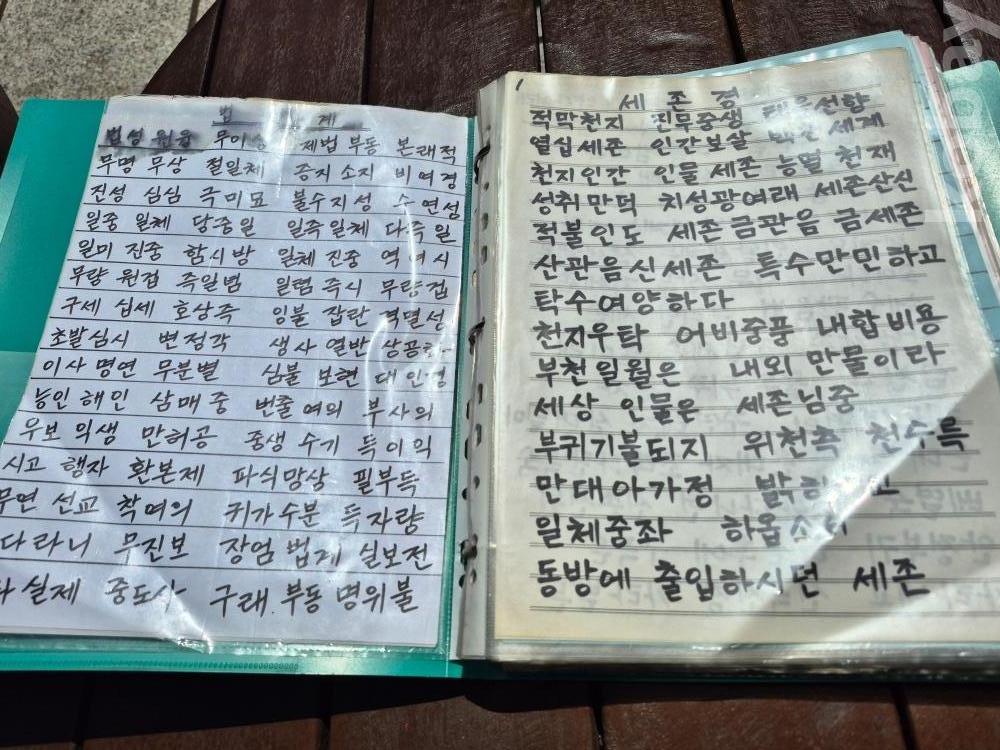 법 계
법성 원융 무이 제법 부동 본래적
무명 무상 절일체 증지 소지 비여경
진성 심심 극미묘 불수지성 수연성
일중 일체 당중일 일즉일체 다즉일
일미 진중 함시방 일체 진중 역여시
무량 원겁 즉일념 일렴 즉시 무량겁
구세 십세 호상즉 잉불 잡란 격멸성
초발심시 변정각 생사 열반 상공
이사 명연 무분별 심불 보현 대인경
능인 해인 삼매 중 번출 여의 부사의
우보 익생 만허공 중생 수기 득이익
시고 행자 환본제 파식망상 필부득
무연 선교 착여의 귀가수분 득자량
다라니 무진보 장엄 법계 실보전
실제 중도상 구래. 부동 명위불
1
세 존 경
적막천지 진무중생
열십세존 인간보살 세계
천지인간 인물 세존 능멸 천재
성취만덕 치성광여래 세존산신
적불인도 세존금관음 금세존
산관음신세존 특수만민하고
탁수여양하다
천지우탁 어비중품 내합비용
부천일월은 내외 만물이라
세상 인물은 세존님중
부귀기불되지 위천측 천수륵
만대아가정 밝히
일체중좌 하옵소
동방에 출입하시던 세존